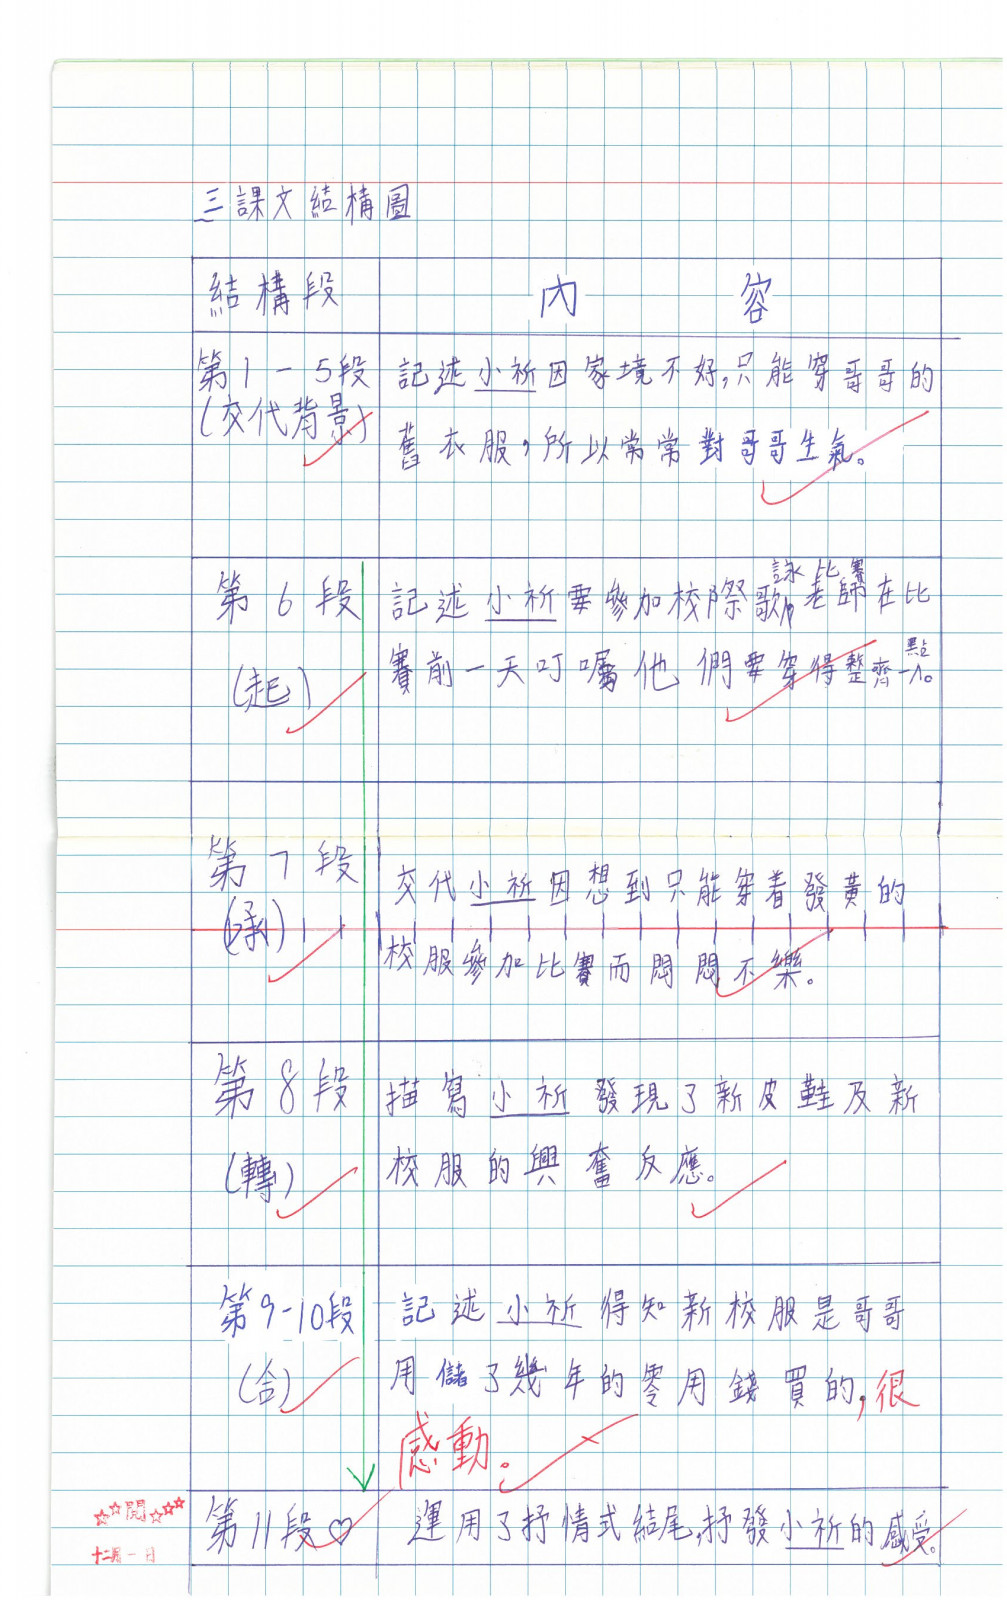 三課文結構圖
結構段 內容
第1-5段 記述小祈因家境不好,只能穿哥哥的
(交代背景) 舊衣服,所以常常對哥哥生氣。
詠比賽
第6段 記述小祈要參加校際歌,老師在比
點
(起) 賽前一天叮囑他們要穿得整齊一。
第7段 交代小祈因想到只能穿着發黃的
(承) 校服參加比賽而悶悶不樂。
第8段 描寫小祈發現了新皮鞋及新
(轉) 校服的興奮反應。
第9-10段 記述小祈得知新校服是哥哥
(合) 用儲了幾年的零用錢買的,很
感動。
第11段♡ 運用了抒情式結尾,抒發小祈的感受。
☆☆閱☆☆☆
十二月一日